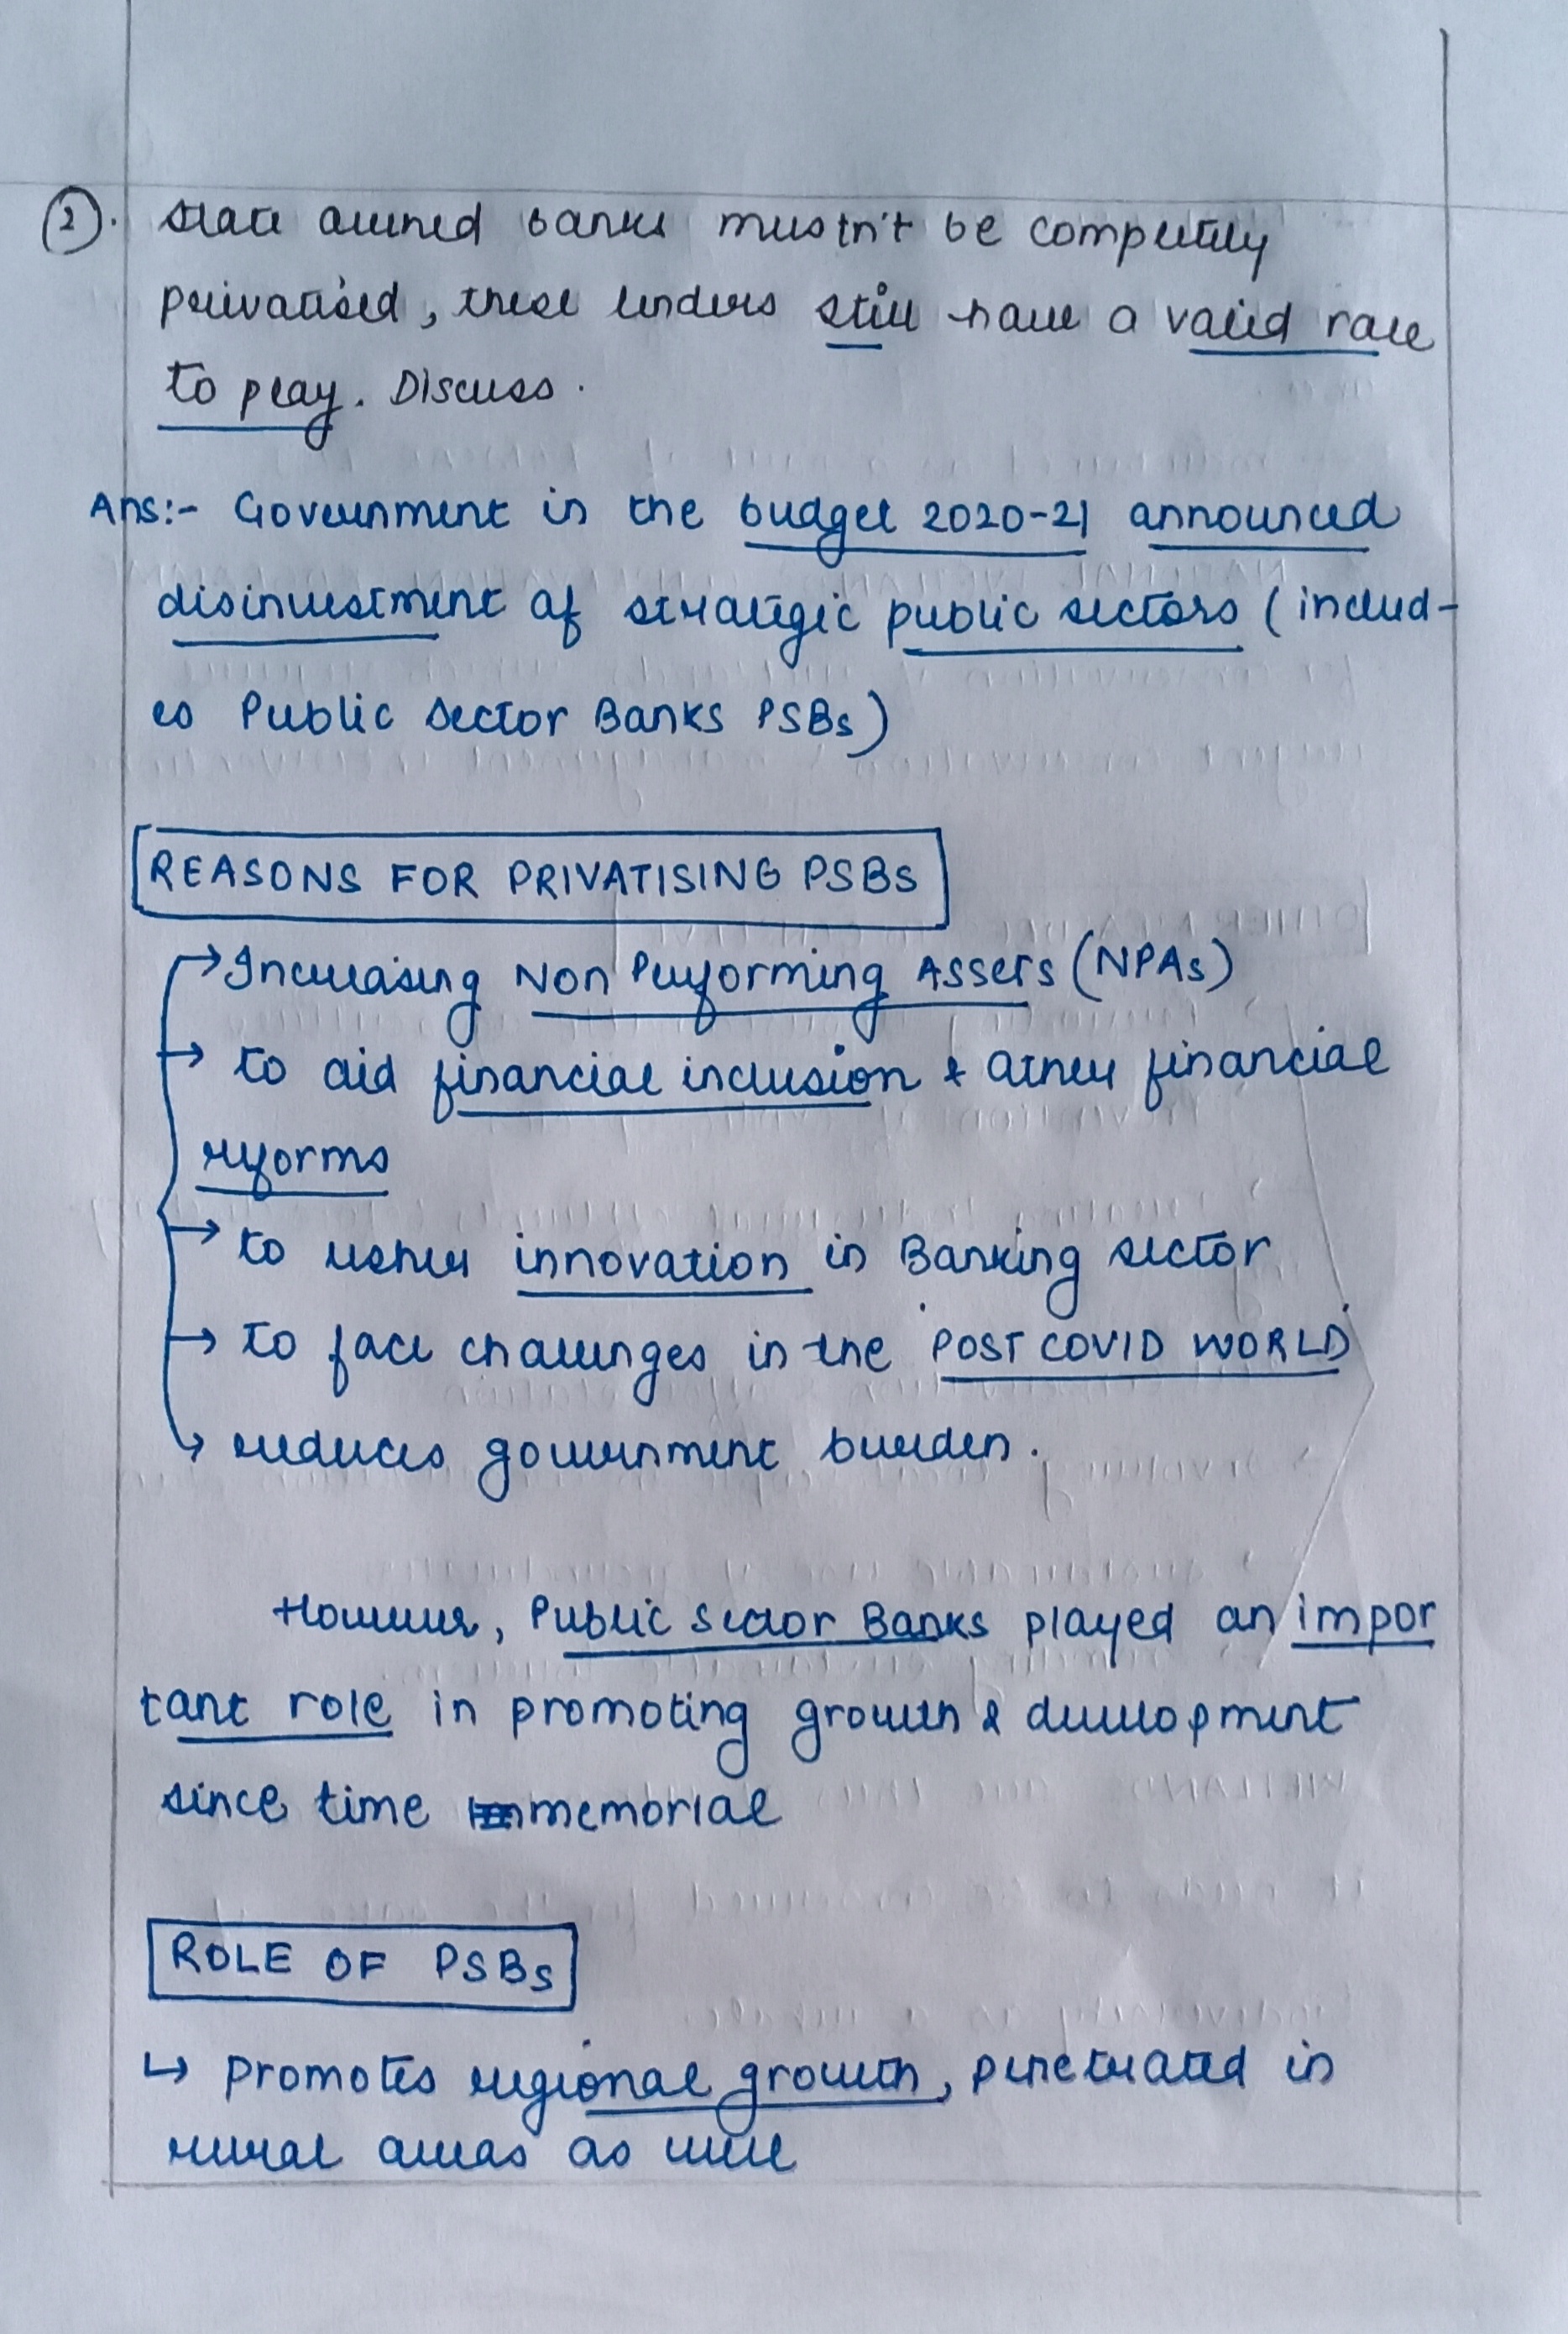 (2). State owned banks mustn't be completely
privatised, these lenders still have a valid role
to play. Discuss.
Ans:- Government in the budget 2020-21 announced
disinvestment of strategic public sectors (includ-
es Public Sector Banks PSBs)
REASONS FOR PRIVATISING PSBs
→ Increasing Non Performing Assets (NPAs)
→ to aid financial inclusion & other financial
reforms
→ to usher innovation in Banking sector
→ to face challenges in the POST COVID WORLD
↳ reduces government burden.
However, Public Sector Banks played an impor
tant role in promoting growth & development
since time memorial
ROLE OF PSBs
↳ promotes regional growth, penetrated in
rural areas as well